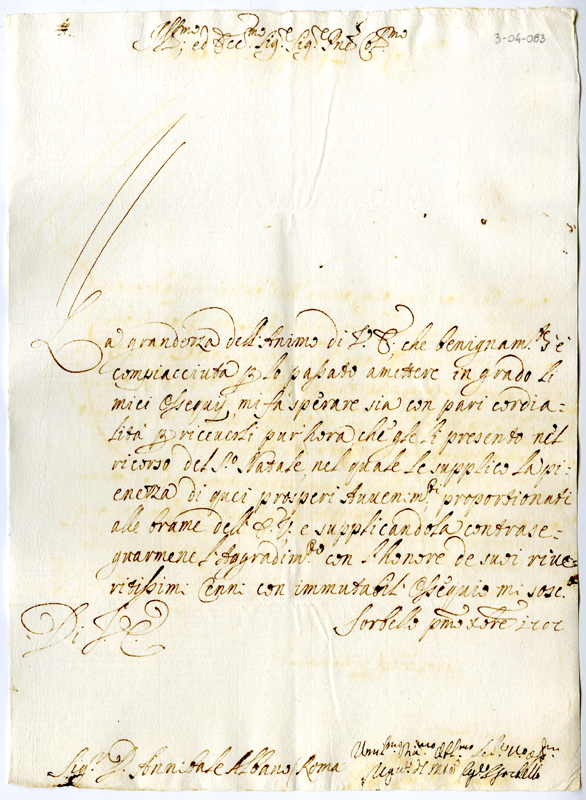 Ill.mo, ed Ecc.mo Sig.r Sig.r Pne Col.mo
3-04-083
La grandezza dell'Animo di V. E. che benignam.te s'è
compiacciuta p lo passato amettere in grado li
miei Ossequij, mi fa sperare sia con pari cordia=
lità p riceverli pur hora che gle li presento nel
ricorso del S.o Natale, nel quale le supplico la pi=
enezza di quei prosperi Avvenim.ti proportionati
alle brame dell' E. V. e supplicandola contrase=
gnarmene l'Aggradim.to con l'honore de suoi rive=
ritissimi Cenni con immutabil Ossequio mi sosc.
Di V. E.
Sorbello pmo
Sig.r D. Annibale Albano Roma